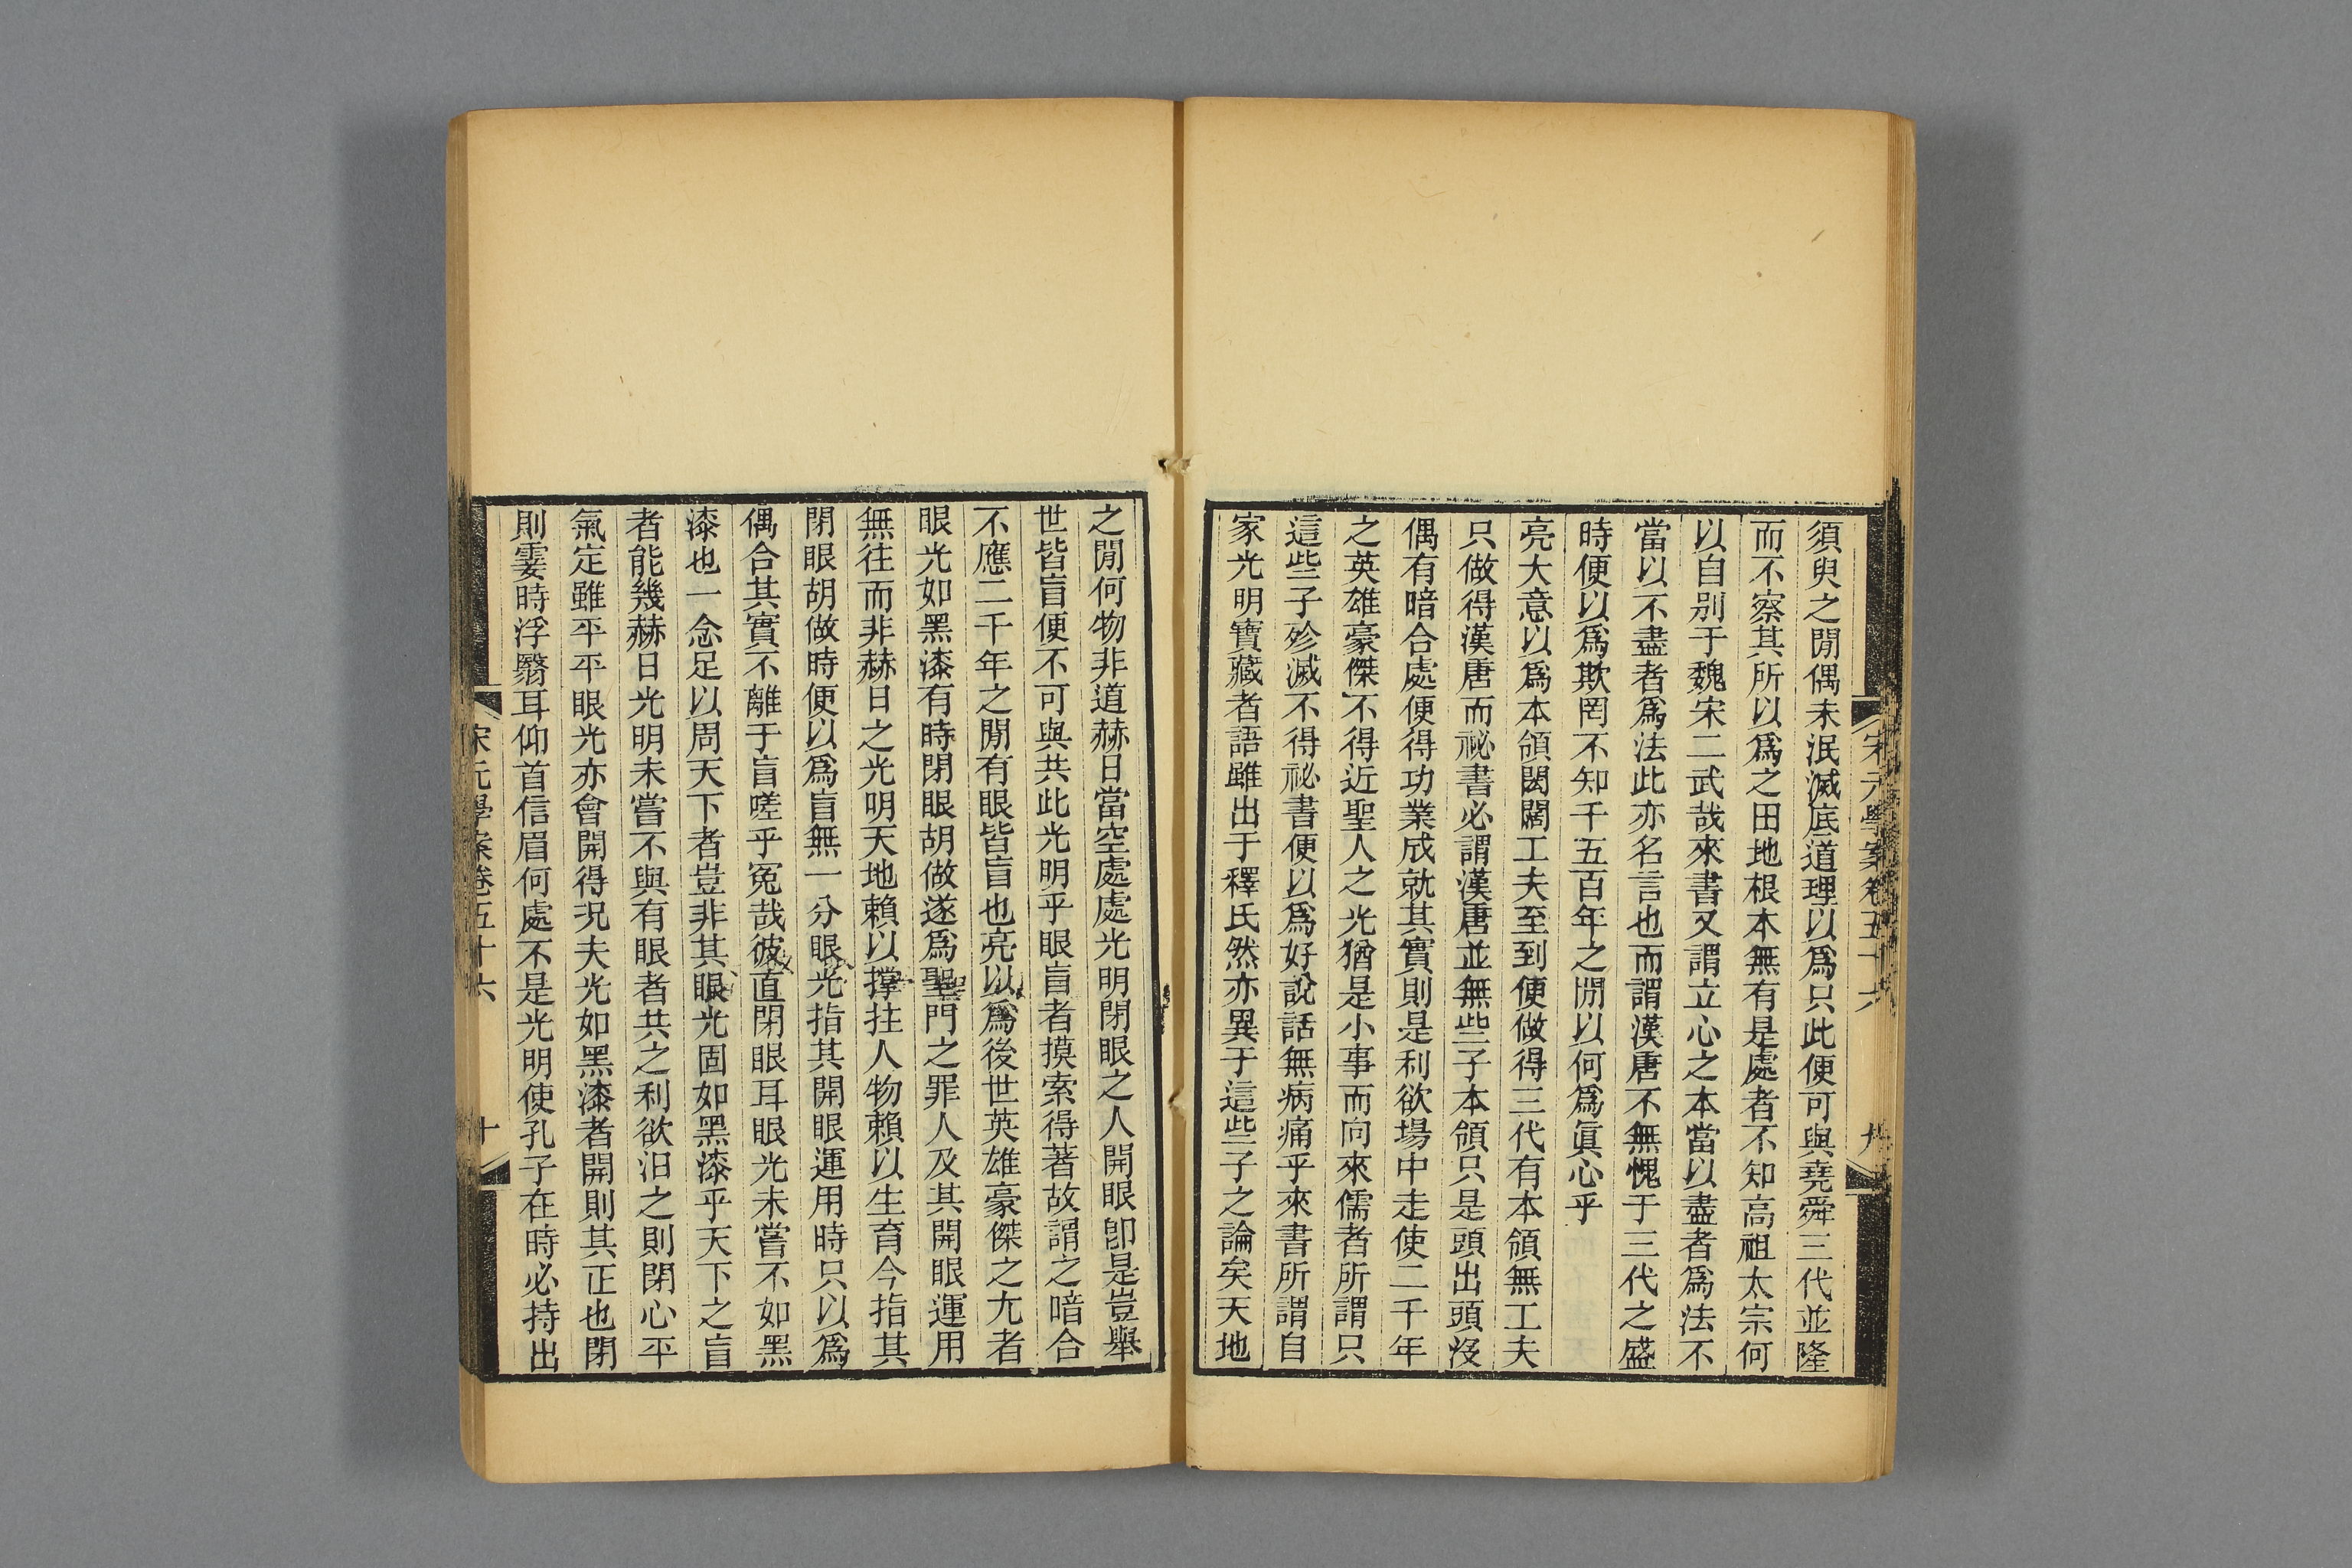 宋元學案卷五十六
九
須臾之閒偶未泯滅底道理以爲只此便可與堯舜三代並隆
而不察其所以爲之田地根本無有是處者不知高祖太宗何
以自別于魏宋二武哉來書又謂立心之本當以盡者爲法不
當以不盡者爲法此亦名言也而謂漢唐不無愧于三代之盛
時便以爲欺罔不知千五百年之閒以何爲眞心乎
亮大意以爲本領閎闊工夫至到便做得三代有本領無工夫
只做得漢唐而祕書必謂漢唐並無些子本領只是頭出頭沒
偶有暗合處便得功業成就其實則是利欲場中走使二千年
之英雄豪傑不得近聖人之光猶是小事而向來儒者所謂只
這些子殄滅不得祕書便以爲好說話無病痛乎來書所謂自
家光明寶藏者語雖出于釋氏然亦異于這些子之論矣天地
之閒何物非道赫日當空處處光明閉眼之人開眼卽是豈舉
世皆盲便不可與共此光明乎眼盲者摸索得著故謂之暗合
不應二千年之閒有眼皆盲也亮以爲後世英雄豪傑之尤者
眼光如黑漆有時閉眼胡做遂爲聖門之罪人及其開眼運用
無往而非赫日之光明天地賴以撐拄人物賴以生育今指其
閉眼胡做時便以爲盲無一分眼光指其開眼運用時只以爲
偶合其實不離于盲嗟乎冤哉彼直閉眼耳眼光未嘗不如黑
漆也一念足以周天下者豈非其眼光固如黑漆乎天下之盲
者能幾赫日光明未嘗不與有眼者共之利欲汨之則閉心平
氣定雖平平眼光亦會開得況夫光如黑漆者開則其正也閉
則霎時浮翳耳仰首信眉何處不是光明使孔子在時必持出
宋元學案卷五十六
十